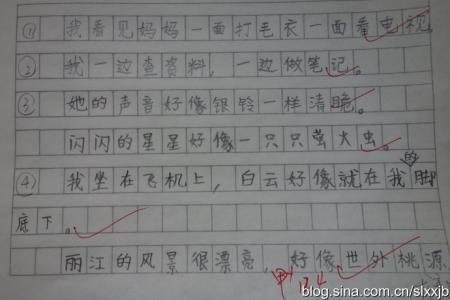 ① 我看见妈妈一面打毛衣一面看电视。
② 我一边查资料，一边做笔记。
③ 她的声音好像银铃一样清脆。
闪闪的星星好像一只只萤火虫。
④ 我坐在飞机上，白云好像就在我的脚
底下。
丽江的风景很漂亮，好像世外桃源
blog.sina.com.cn/slxxjb